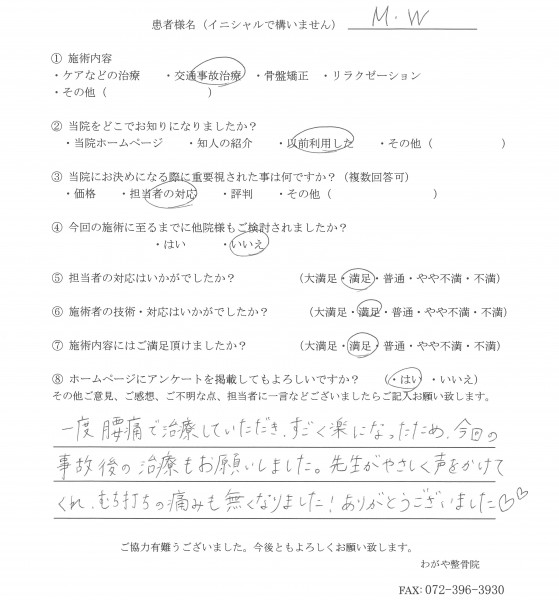 患者様名（イニシャルで構いません） M・W
① 施術内容
・ケアなどの治療 ・交通事故治療 ・骨盤矯正 ・リラクゼーション
・その他（ ）
② 当院をどこでお知りになりましたか？
・当院ホームページ ・知人の紹介 ・以前利用した ・その他（ ）
③ 当院にお決めになる際に重要視された事は何ですか？（複数回答可）
・価格 ・担当者の対応 ・評判 ・その他（ ）
④ 今回の施術に至るまでに他院様もご検討されましたか？
・はい ・いいえ
⑤ 担当者の対応はいかがでしたか？ （大満足・満足・普通・やや不満・不満）
⑥ 施術者の技術・対応はいかがでしたか？ （大満足・満足・普通・やや不満・不満）
⑦ 施術内容にはご満足頂けましたか？ （大満足・満足・普通・やや不満・不満）
⑧ ホームページにアンケートを掲載してもよろしいですか？ （・はい ・いいえ）
その他ご意見、ご感想、ご不明な点、担当者に一言などございましたらご記入お願い致します。
一度腰痛で治療していただき、すごく楽になったため、今回の
事故後の治療もお願いしました。先生がやさしく声をかけて
くれ、むち打ちの痛みも無くなりました！ありがとうございました♡♡
ご協力有難うございました。今後ともよろしくお願い致します。
わがや整骨院
FAX: 072-396-3930